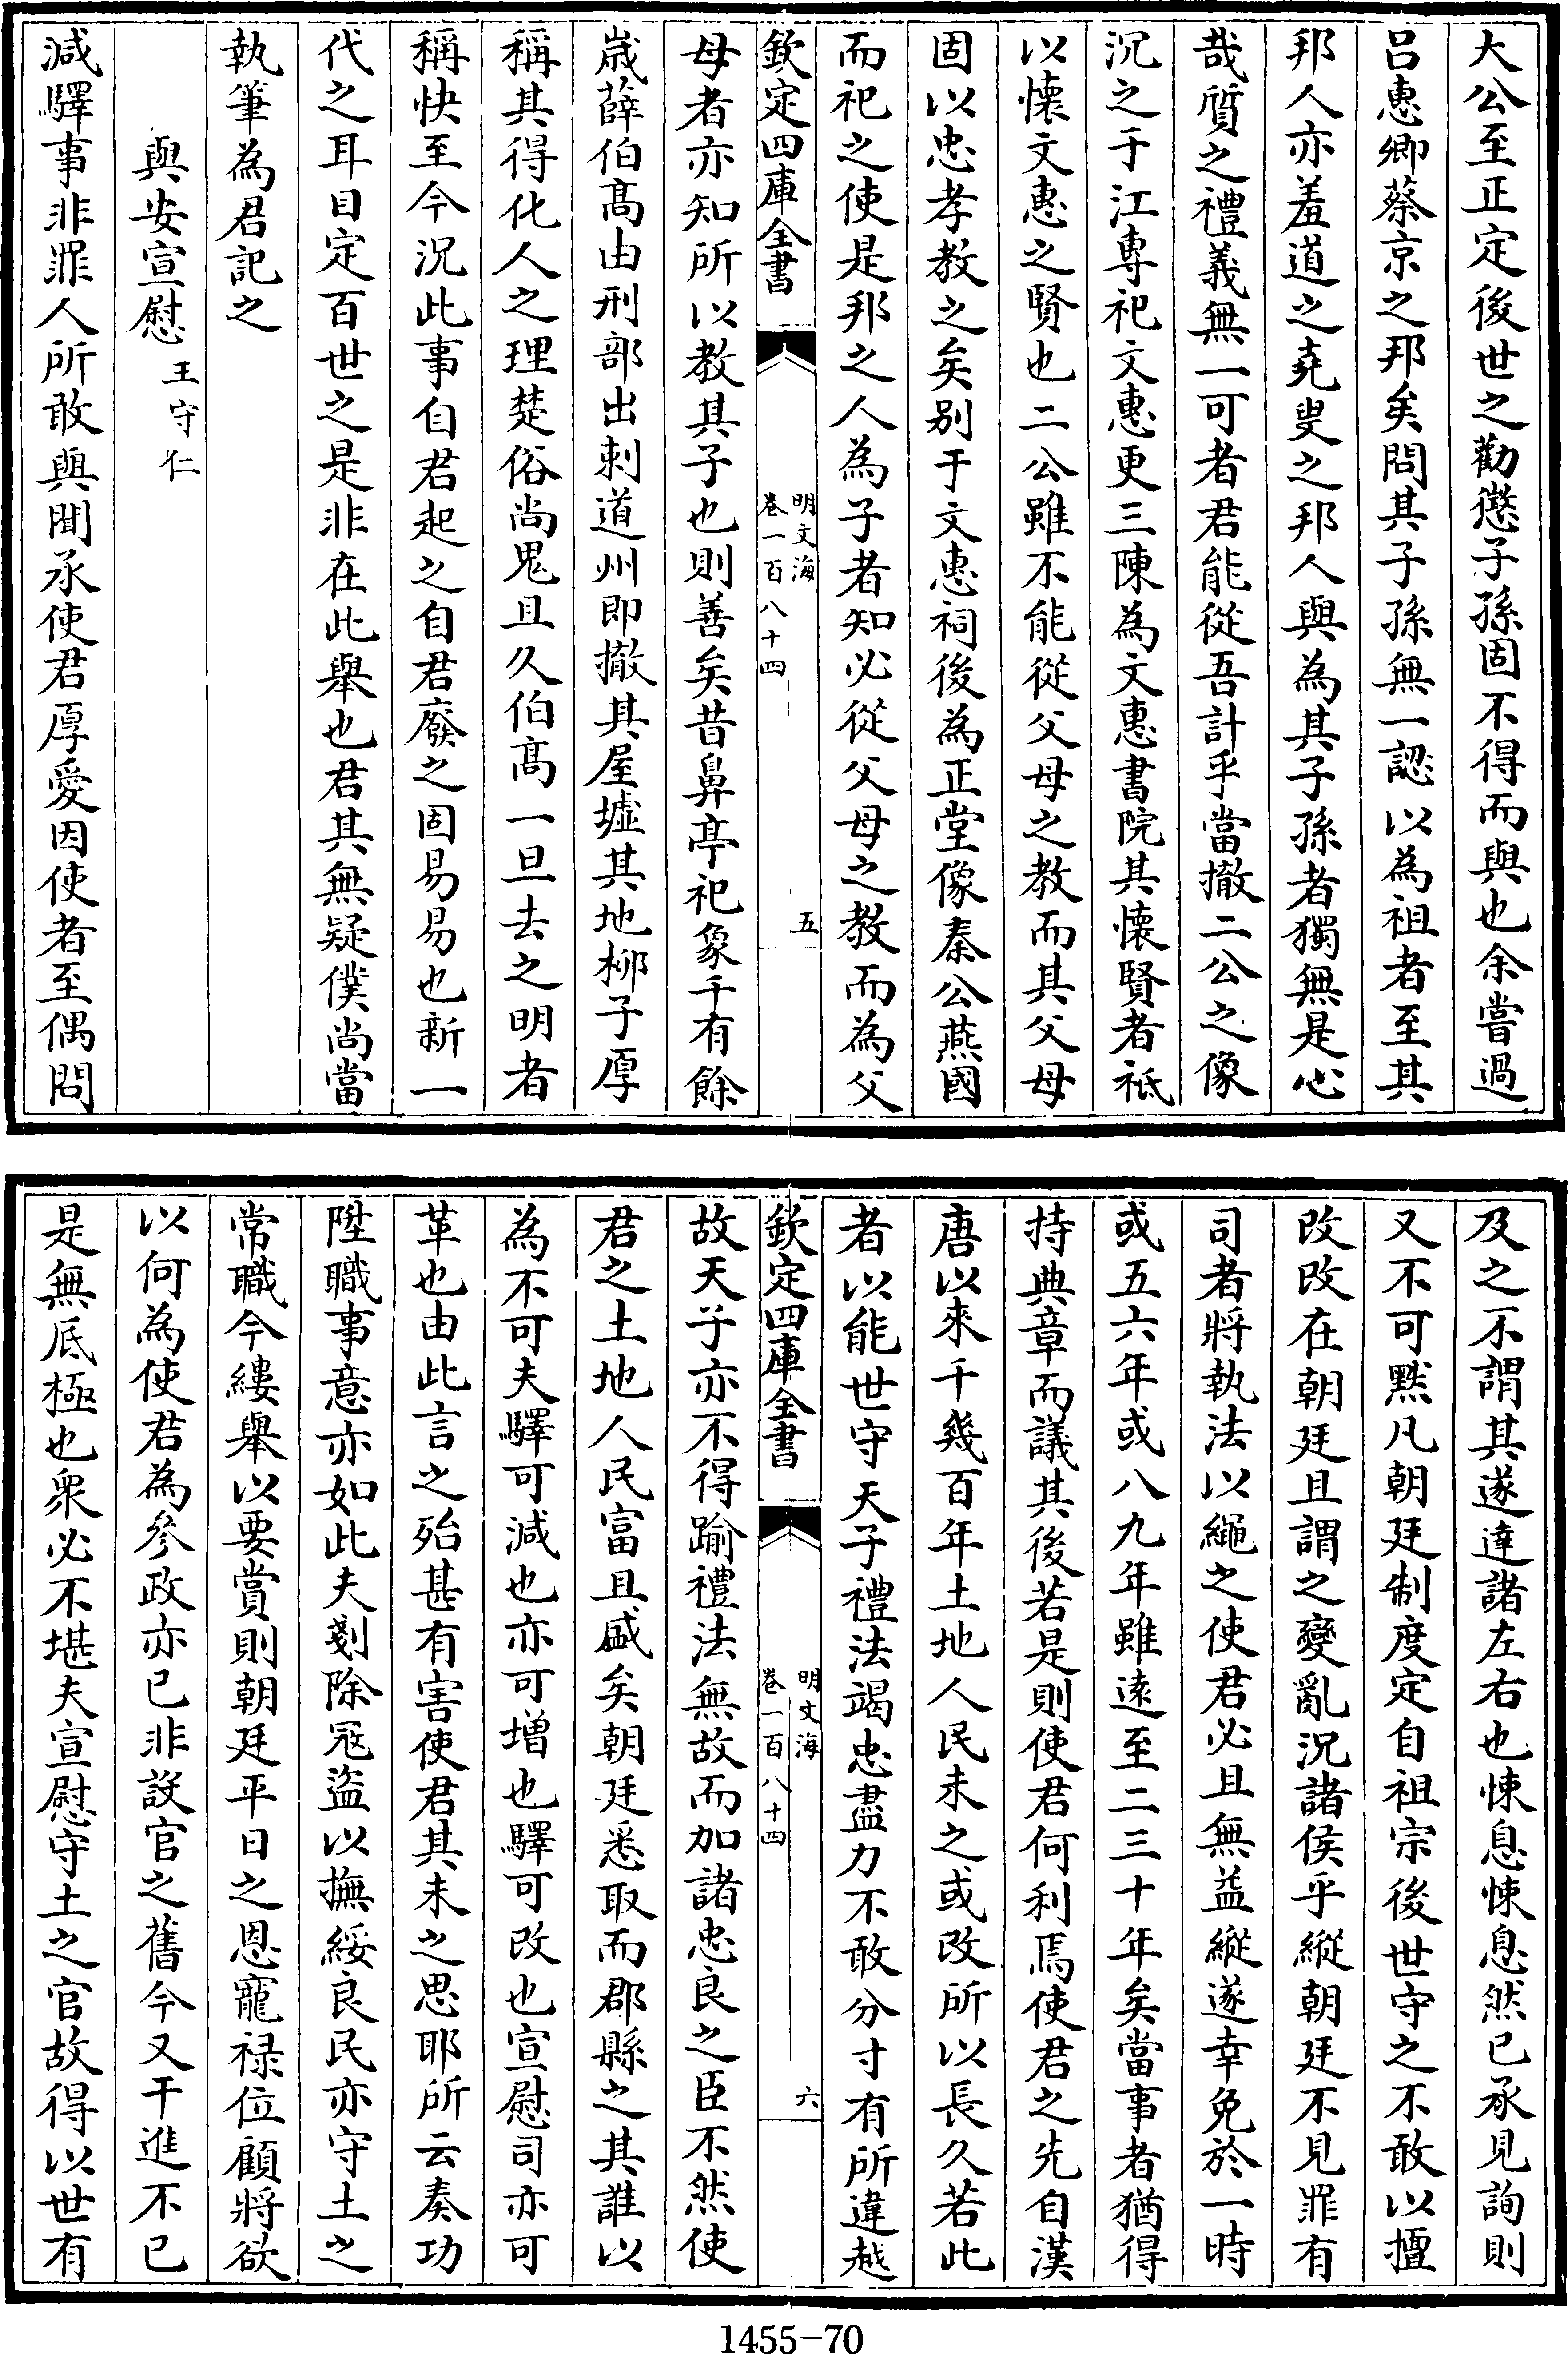 大公至正定後世之勸懲子孫固不得而與也余嘗過
呂惠卿蔡京之邦矣問其子孫無一認以為祖者至其
邦人亦羞道之堯叟之邦人與為其子孫者獨無是心
哉質之禮義無一可者君能從吾計乎當撤二公之像
沉之于江專祀文惠更三陳為文惠書院其懐賢者祗
以懐文惠之賢也二公雖不能從父母之教而其父母
固以忠孝教之矣别于文惠祠後為正堂像秦公燕國
而祀之使是邦之人為子者知必從父母之教而為父
欽定四庫全書
明文海
卷一百八十四
五
母者亦知所以教其子也則善矣昔鼻亭祀象千有餘
歳薛伯髙由刑部出刺道州即撤其屋墟其地栁子厚
稱其得化人之理楚俗尚鬼且久伯髙一旦去之明者
稱快至今況此事自君起之自君廢之固易易也新一
代之耳目定百世之是非在此舉也君其無疑僕尚當
執筆為君記之
與安宣慰 王守仁
減驛事非罪人所敢與聞承使君厚愛因使者至偶問
及之不謂其遂達諸左右也悚息悚息然已承見詢則
又不可黙凡朝廷制度定自祖宗後世守之不敢以擅
改改在朝廷且謂之變亂況諸侯乎縱朝廷不見罪有
司者將執法以繩之使君必且無益縱遂幸免於一時
或五六年或八九年雖逺至二三十年矣當事者猶得
持典章而議其後若是則使君何利焉使君之先自漢
唐以來千幾百年土地人民未之或改所以長久若此
者以能世守天子禮法竭忠盡力不敢分寸有所違越
欽定四庫全書
明文海
卷一百八十四
六
故天子亦不得踰禮法無故而加諸忠良之臣不然使
君之土地人民富且盛矣朝廷悉取而郡縣之其誰以
為不可夫驛可減也亦可增也驛可改也宣慰司亦可
革也由此言之殆甚有害使君其未之思耶所云奏功
陞職事意亦如此夫剗除冦盜以撫綏良民亦守土之
常職今縷舉以要賞則朝廷平日之恩寵禄位顧將欲
以何為使君為參政亦已非設官之舊今又干進不已
是無底極也衆必不堪夫宣慰守土之官故得以世有
1455-70